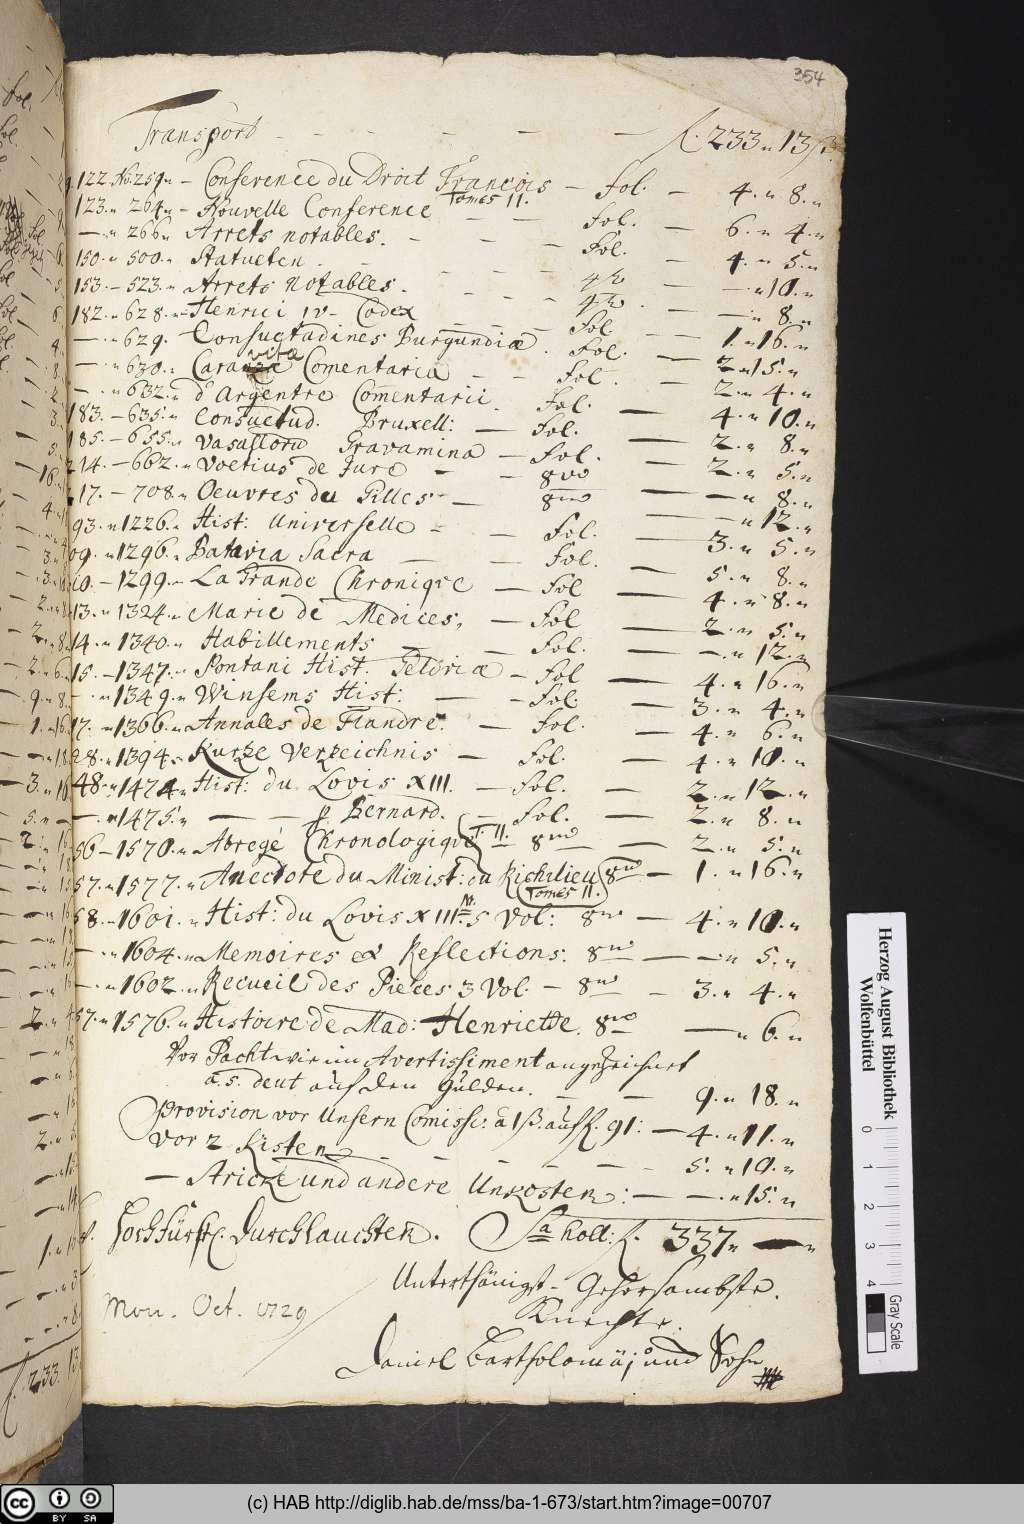 354
Transport - - - - - - f. 233 „ 13 ß.
122. No. 259 „ - Conference du Droit Francois - fol. - 4. „ 8. „
123. „ 264 „ - Nouvelle Conference Tomes II. - - fol. - 6. „ 4. „
— „ 266 „ Arrets notables. - - - fol. - 4. „ 5. „
150. „ 500. „ Statueten . - - - - 4to — - „ 10. „
153. - 523. „ Arrets Notables. - - - 4to . — - „ 8. „
182. „ 628. „ Henrici IV - Codex - - - fol — 1. „ 16. „
— „ 629. Consuetudines Burgundiæ . fol. — 2 „ 15. „
— „ 630. „ Caranza vita Comentaria - - fol . — 2. „ 4. „
— „ 632. „ d'Argentre Comentarii . fol. — 4. „ 10. „
183. - 635. „ Consuetud. Bruxell: — fol. — 2. „ 8. „
185. - 655. „ Vasalloru Gravamina — fol. — 2. „ 5. „
214. - 662. „ Voetius de Jure - - 8vo — - „ 8. „
17. - 708. „ Oeuvres du Gilles - — 8vo — - „ 12. „
93. „ 1226. „ Hist: Universelle - - fol. — 3. „ 5. „
09. „ 1296. „ Batavia Sacra — - fol. — 5. „ 8. „
10. - 1299. - La Grande Chronique — fol — 4. „ 8. „
13. „ 1324. „ Marie de Medices, — fol — 2. „ 5. „
14. „ 1340. „ Habillements — - fol. — -. „ 12. „
15. - 1347. „ Pontani Hist. Geldriæ - fol — 4. „ 16. „
— „ 1349. „ Winsems Hist: — - fol. — 3. „ 4. „
17. „ 1366. „ Annales de Flandre. — fol. — 4. „ 6. „
28. „ 1394. „ Kurtze Verzeichnis — fol. — 4. „ 10. „
48. „ 1474. „ Hist: du Lovis XIII. — fol. — 2. „ 12. „
— „ 1475. „ — — p Bernard. — fol. — 2. „ 8. „
56 - 1570. „ Abregé Chronologique T. II. 8vo — 2. „ 5. „
57. „ 1577. „ Anecdote du Minist: du Richilieu Tomes II. 8vo — 1. „ 16. „
58. - 1601. „ Hist: du Lovis XIII 5 Vol: 8vo — 4. „ 10. „
— „ 1604. „ Memoires et Reflections. 8vo — — „ 5. „
— „ 1602. „ Recueil des Pieces 3 Vol. - 8vo — 3. „ 4. „
57. „ 1576. „ Histoire de Mad: Henriette. 8vo — „ 6. „
Vor Pacht wie im Avertissiment angezeichnet
a. 5. deut auf den Gülden. - - - 9. „ 18. „
Provision vor Unsern Comiss: à 1 ß. auf f. 91: — 4. „ 11. „
Vor 2 Kisten - - - - - - 5. „ 10. „
— Stricke und andere Unkosten: — -. „ 15. „
Hochfürstl. Durchlauchten. Sa holl: f. 337 „ — „
Unterthänigst - Gehorsambste.
Knechte.
Daniel Bartholomäi und Sohn
Mon. Oct. 1729
Herzog August Bibliothek
Wolfenbüttel
0 1 2 3 4
Gray Scale
(c) HAB http://diglib.hab.de/mss/ba-1-673/start.htm?image=00707
cc BY SA